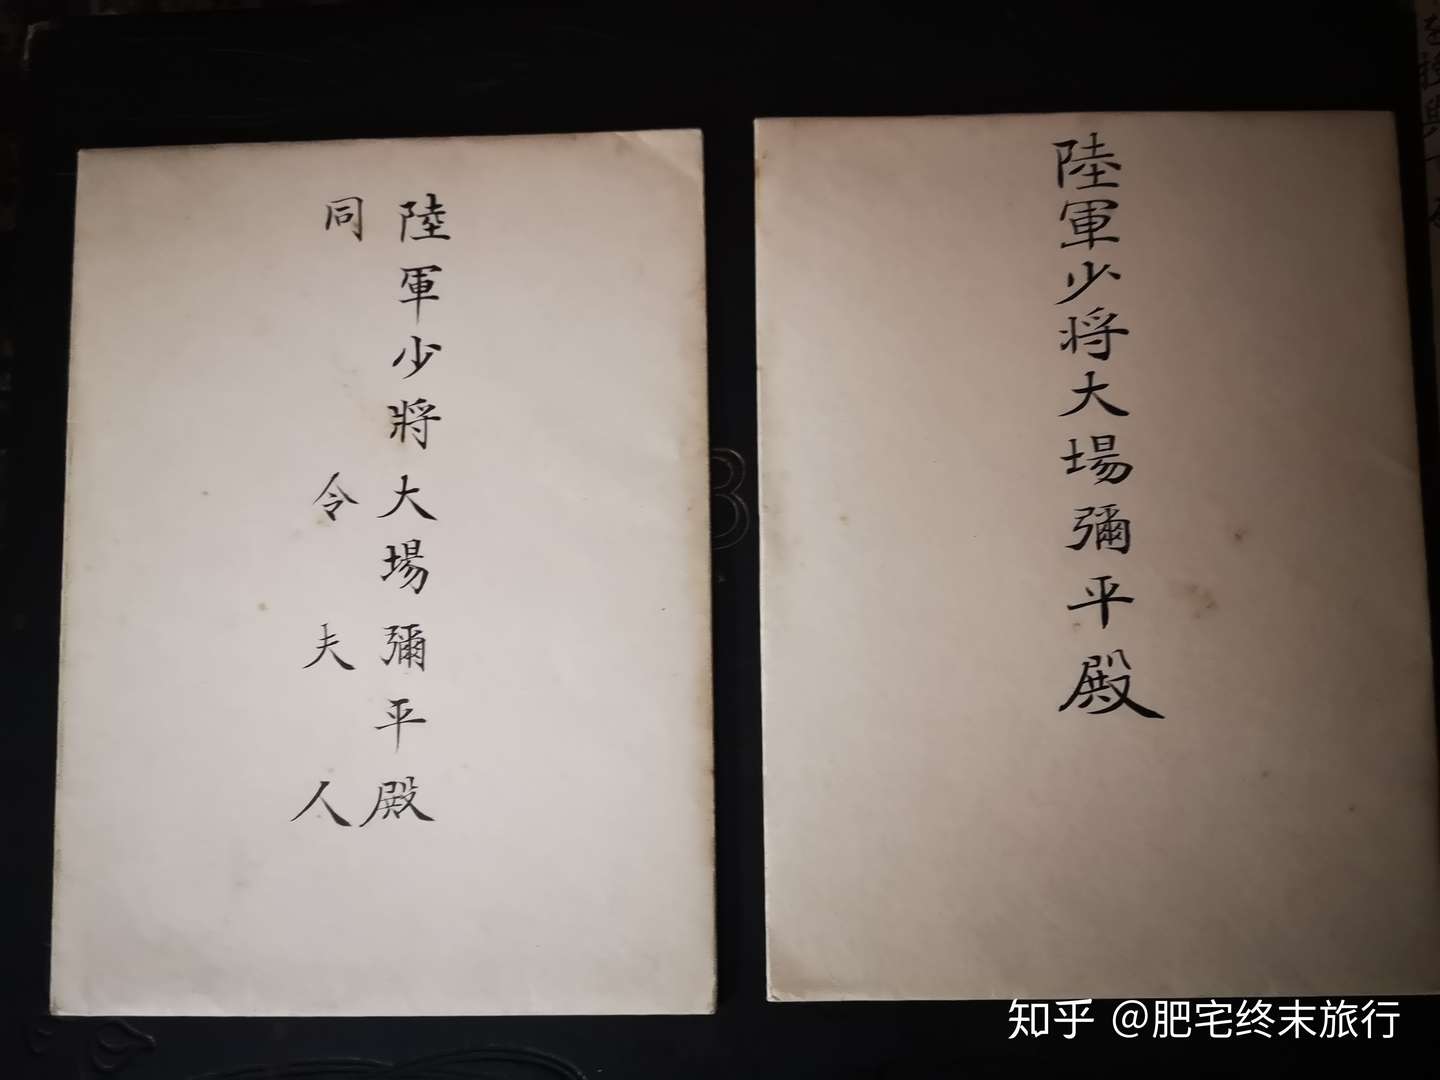 陸軍少將大場彌平殿
同令夫人
陸軍少将大場彌平殿
知乎 @肥宅终末旅行